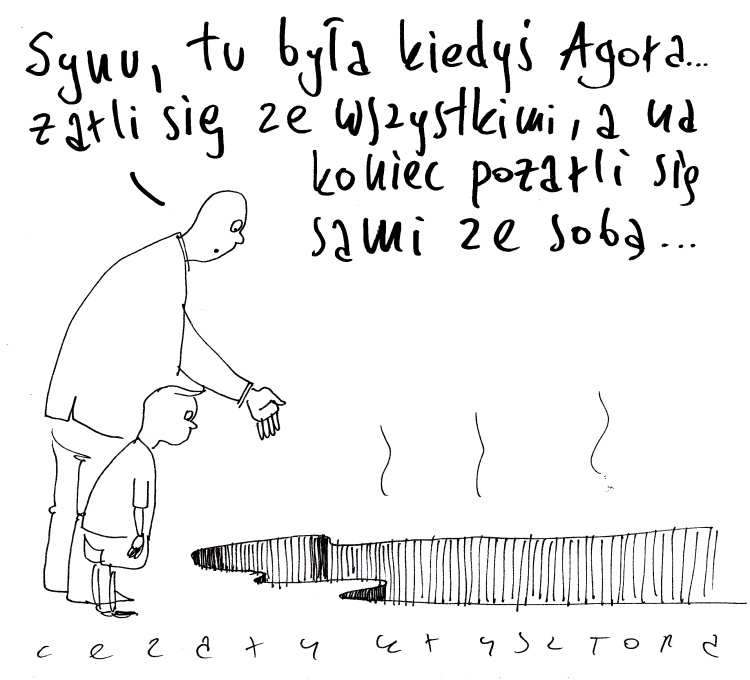 Synu, tu była kiedyś Agora...
żarli się ze wszystkimi, a na
koniec pożarli się
sami ze sobą...
cezary krysztopa